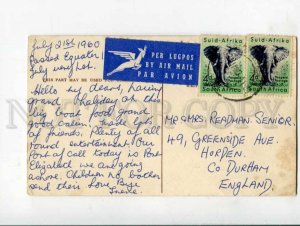 July 21st 1960
Passed Equator!
July very hot.
THIS PART MAY BE USED
Hello my dears, having
grand holiday on this
big boat food grand
good cabin, made lots
of friends. Plenty of all
round entertainment. Our
Port of call today is Port
Elizabeth we are going
ashore. Children no bother
send their love. Bye
PER LUGPOS
BY AIR MAIL
PAR AVION
Suid-Afrika
Suid-Afrika
South Africa
South Africa
MR & MRS. READMAN. SENIOR.
49, GREENSIDE AVE.
HORDEN.
CO DURHAM
ENGLAND.
oldpostcard